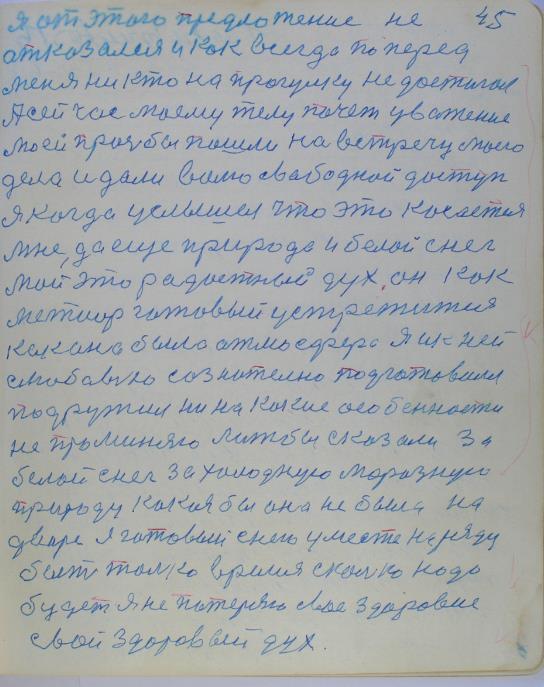 45
я от этого предложение не
отказался и как всегда поперед
меня никто на прогулку не достигал
А сей час моему телу почет уважение
моей прозьбы пошли на встречу моего
дела и дали волю свабодной доступ
я когда услышел что это касается
мне, да еще природа и белой снег
мой это радостный дух, он как
метиор готовый
какана была атмосфера я ик ней
с любавью сознателно подготовился
подружил ни на какие особенности
не проминяю лижбы сказали за
белой снег за холодную моразную
природу какая бы она не была на
дворе я готовый снею уместе наряду
быть толко время сколко надо
будет я не потеряю свое здоровие
свой здоровый дух.